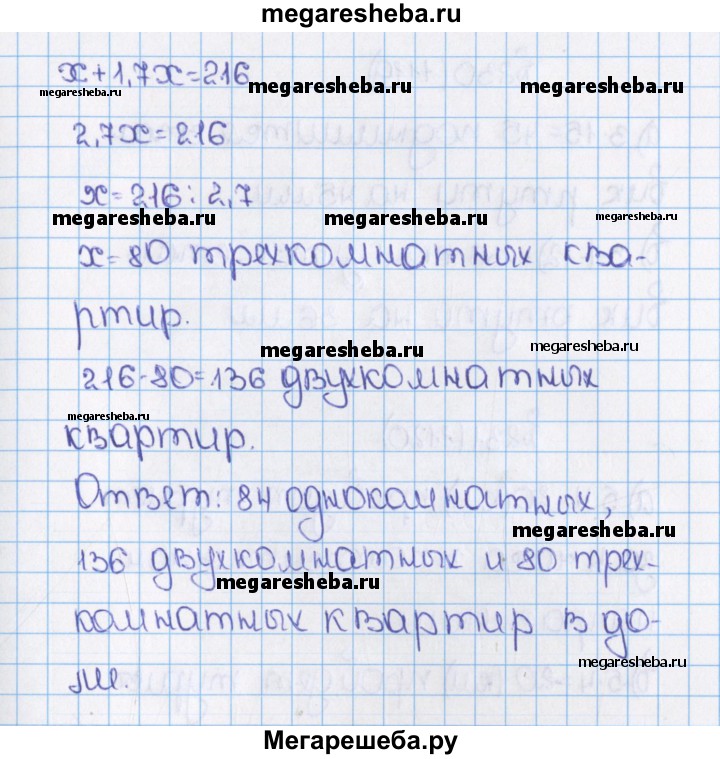 megaresheba.ru
x+1,7x=216
megaresheba.ru megaresheba.ru
2,7x=216
x=216:2,7
megaresheba.ru megaresheba.ru megaresheba.ru
x=80 трехкомнатных ква-
ртир.
megaresheba.ru megaresheba.ru
216-80=136 двухкомнатных
megaresheba.ru
квартир.
Ответ: 84 однокомнатных,
megaresheba.ru
136 двухкомнатных и 80 трех-
megaresheba.ru
комнатных квартир в до-
megaresheba.ru
ме.
Мегарешеба.ру